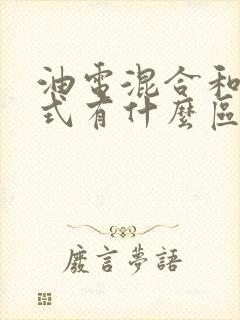 油電混合和
式有什麼區
廢言夢語